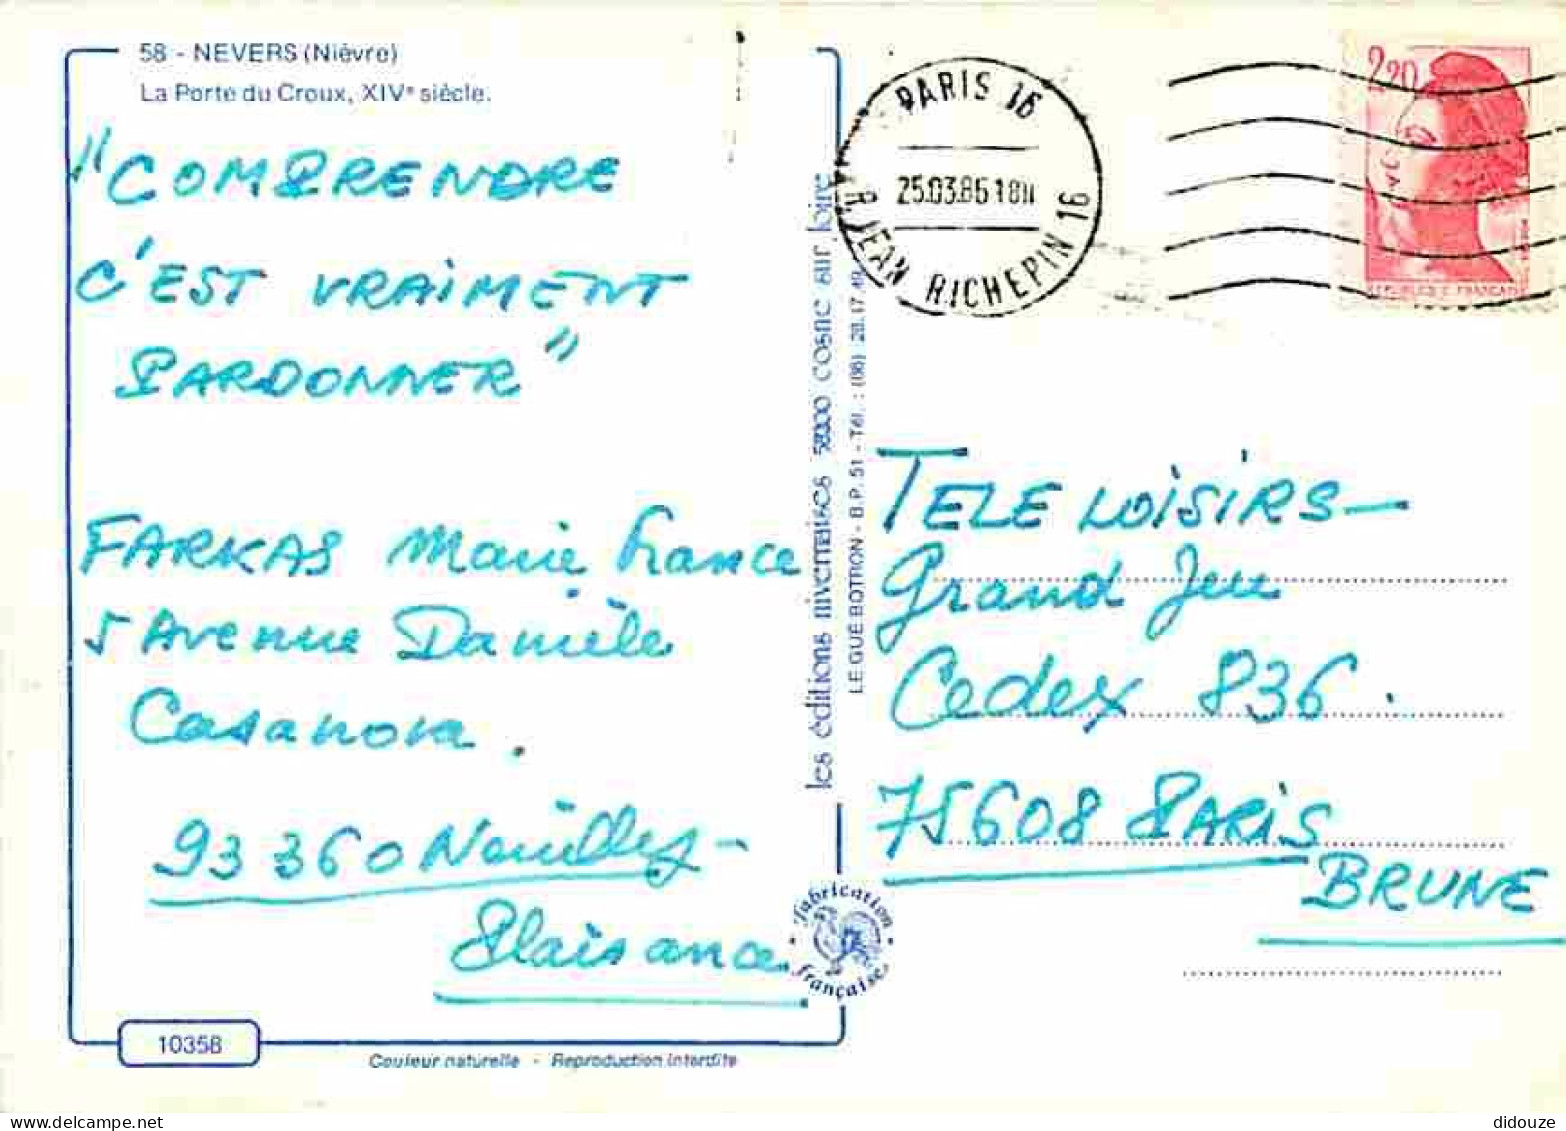 58 - NEVERS (Nièvre)
La Porte du Croux, XIVe siècle.
"COMPRENDRE
C'EST VRAIMENT
PARDONNER"
FARKAS Marie France
5 Avenue Danièle
Casanova.
93360 Neuilley-
Plaisance
10358
Couleur naturelle - Reproduction interdite
les éditions nivernaises 58200 cosne sur loire
LE GUÉ BOTRON - B.P. 51 - Tél. : (86) 28.17.49
fabrication
française
PARIS 16
25.03.86 18H
R. JEAN RICHEPIN 16
2,20
TELE LOISIRS-
Grand Jeu
Cedex 836.
75608 PARIS
BRUNE
didouze